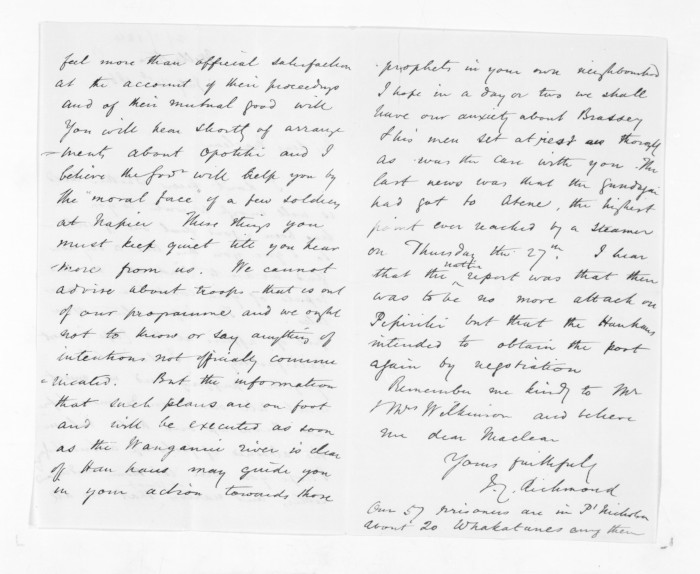 feel more than official satisfaction
at the account of their proceedings
and of their mutual good will
You will hear shortly of arrange
-ments about Opotiki and I
believe the Govr will help you by
the "moral face of a few soldiers
at Napier These things you
must keep quiet till you hear
more from us. We cannot
advise about troops - that is out
of our programme and we ought
not to know or say anything of
intentions not officially commu
-nicated. But the information
that such plans are on foot
and will be executed as soon
as the Wanganui river is clear
of Hau haus may guide you
in your action towards those
prophets in your own neighbourhood
I hope in a day or two we shall
have our anxiety about Brassey
& his men set at rest as
as was the case with you. The
last news was that the Gundagai
had got to Atene, the highest
point ever reached by a steamer
on Thursday the 27th. I hear
that the native report was that there
was to be no more attack on
Pipiriki but that the Hauhaus
intended to obtain the post
again by negotiation
Remember me kindly to Mr
& Mrs Wilkinson and believe
me dear Maclean
Yours faithfully
J.C. Richmond
Our 57 prisoners are in Pt Nicholson
about 20 Whakatanes among them